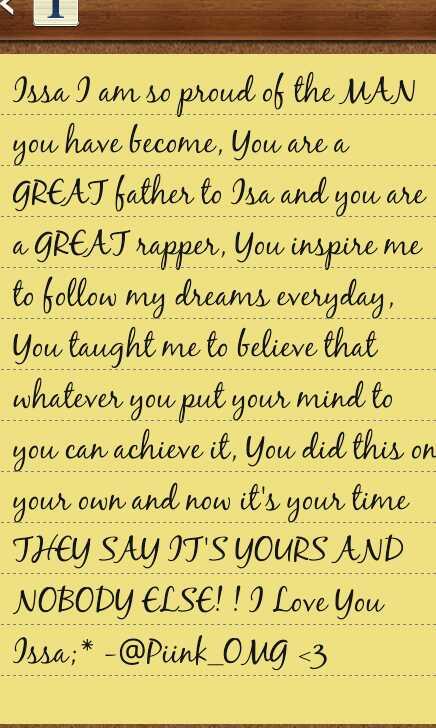 Issa I am so proud of the MAN
you have become, You are a
GREAT father to Isa and you are
a GREAT rapper, You inspire me
to follow my dreams everyday,
You taught me to believe that
whatever you put your mind to
you can achieve it, You did this on
your own and now it's your time
THEY SAY IT'S YOURS AND
NOBODY ELSE! ! I Love You
Issa;* -@Piink_OMG <3